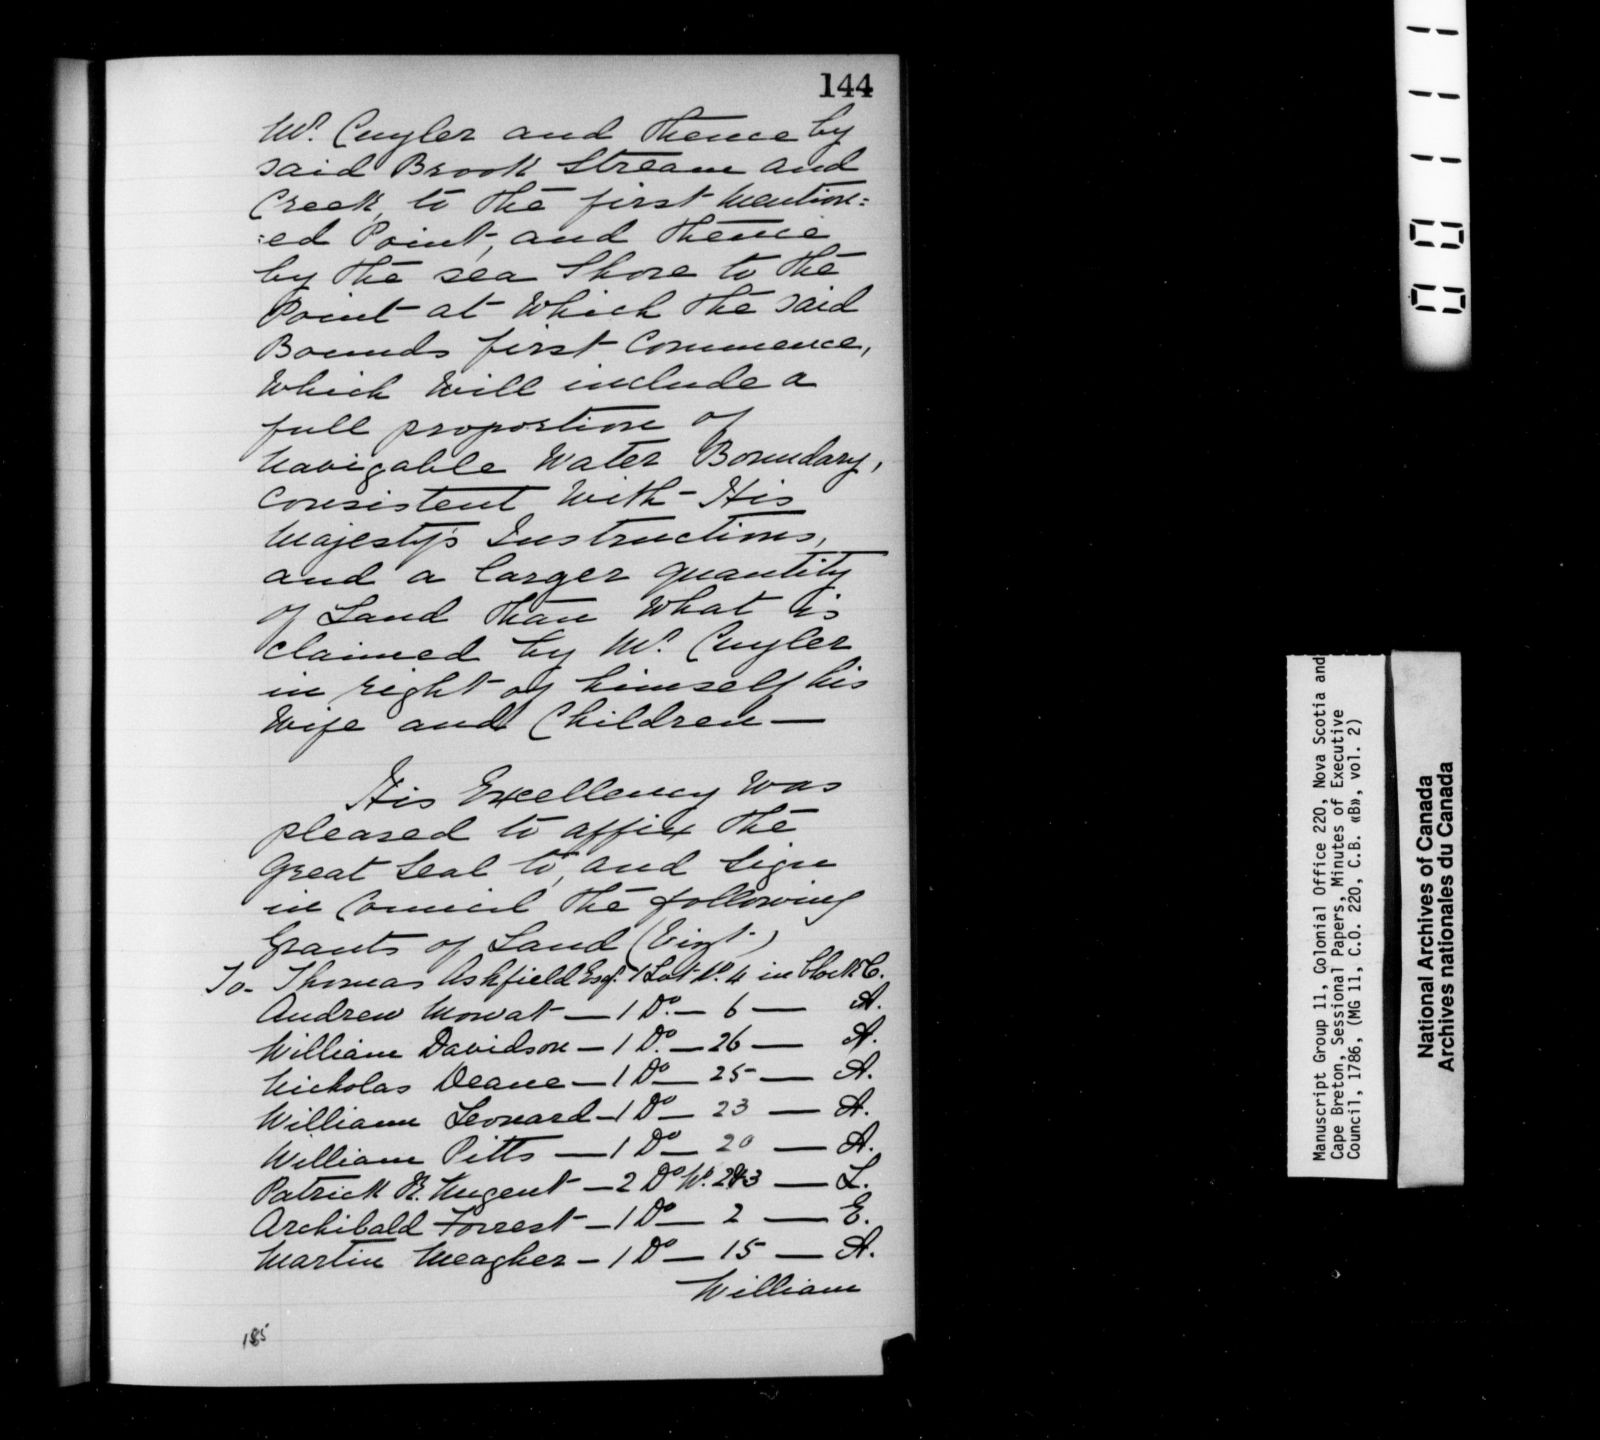 144
Mr. Cuyler and thence by
said Brook Stream and
Creek, to the first mention=
=ed Point, and thence
by the sea Shore to the
Point at Which the said
Bounds first Commence,
Which Will include a
full proportion of
navigable Water Boundary,
consistent With His
Majesty's Instructions,
and a larger quantity
of Land than What is
claimed by Mr. Cuyler
in right of himself his
Wife and Children —
His Excellency Was
pleased to affix the
Great Seal to, and Sign
in Council the following
Grants of Land (Vizt.)
To- Thomas Ashfield Esqr. 1 Lot No. 4 in block C.
Andrew Mowat — 1 Do. — 6 — A.
William Davidson — 1 Do. — 26 — A.
Nicholas Deane — 1 Do — 25 — A.
William Leonard — 1 Do — 23 — A.
William Pitts — 1 Do — 20 — A.
Patrick R. Nugent — 2 Do No. 2&3 — L.
Archibald Forrest — 1 Do — 2 — E.
Martin Meagher — 1 Do — 15 — A.
William
185
Manuscript Group 11, Colonial Office 220, Nova Scotia and
Cape Breton, Sessional Papers, Minutes of Executive
Council, 1786, (MG 11, C.O. 220, C.B. «B», vol. 2)
National Archives of Canada
Archives nationales du Canada